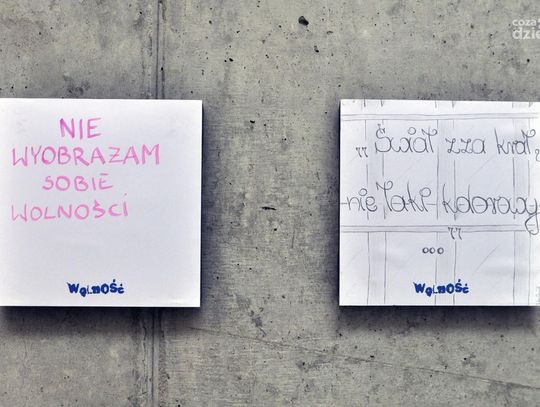 NIE
WYOBRAZAM
SOBIE
WOLNOŚCI
WolNOŚĆ
„Świat zza krat,
-nie taki- kolorowy
”
...
WolNOŚĆ
coza
dzie